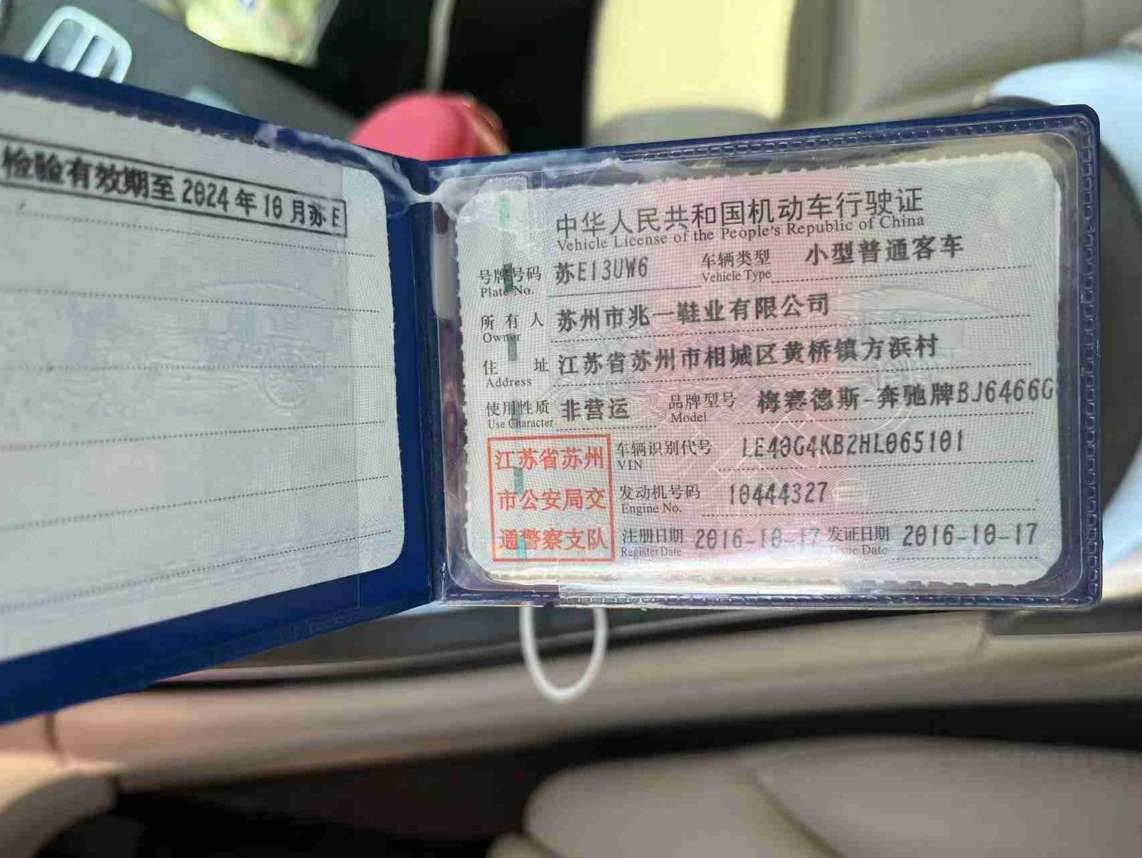 检验有效期至2024年10月苏E
中华人民共和国机动车行驶证
Vehicle License of the People's Republic of China
号牌号码 苏E13UW6 车辆类型 小型普通客车
Plate No. Vehicle Type
所有人 苏州市兆一鞋业有限公司
Owner
住址 江苏省苏州市相城区黄桥镇方浜村
Address
使用性质 非营运 品牌型号 梅赛德斯-奔驰牌BJ6466G
Use Character Model
江苏省苏州
市公安局交
通警察支队
车辆识别代号 LE40G4KB2HL065101
VIN
发动机号码 10444327
Engine No.
注册日期 2016-10-17 发证日期 2016-10-17
Register Date Issue Date